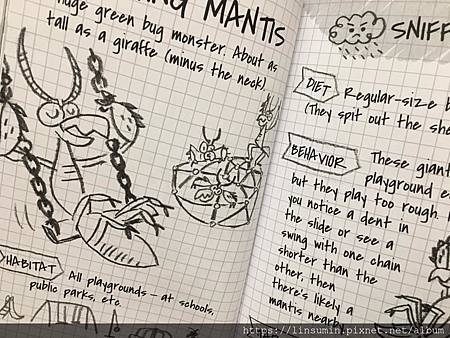 MANTIS
huge green bug monster. About as
tall as a giraffe (minus the neck).
HABITAT
All playgrounds – at schools,
public parks, etc.
SNIFF
DIET
Regular-size b
(They spit out the she
BEHAVIOR
These giant
playground e
but they play too rough.
you notice a dent in
the slide or see a
swing with one chain
shorter than the
other, then
there's likely a
mantis nearby
https://linsumin.pixnet.net/album